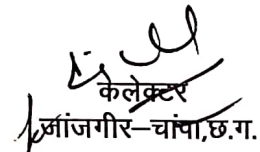 कलेक्टर
जांजगीर–चांपा,छ.ग.